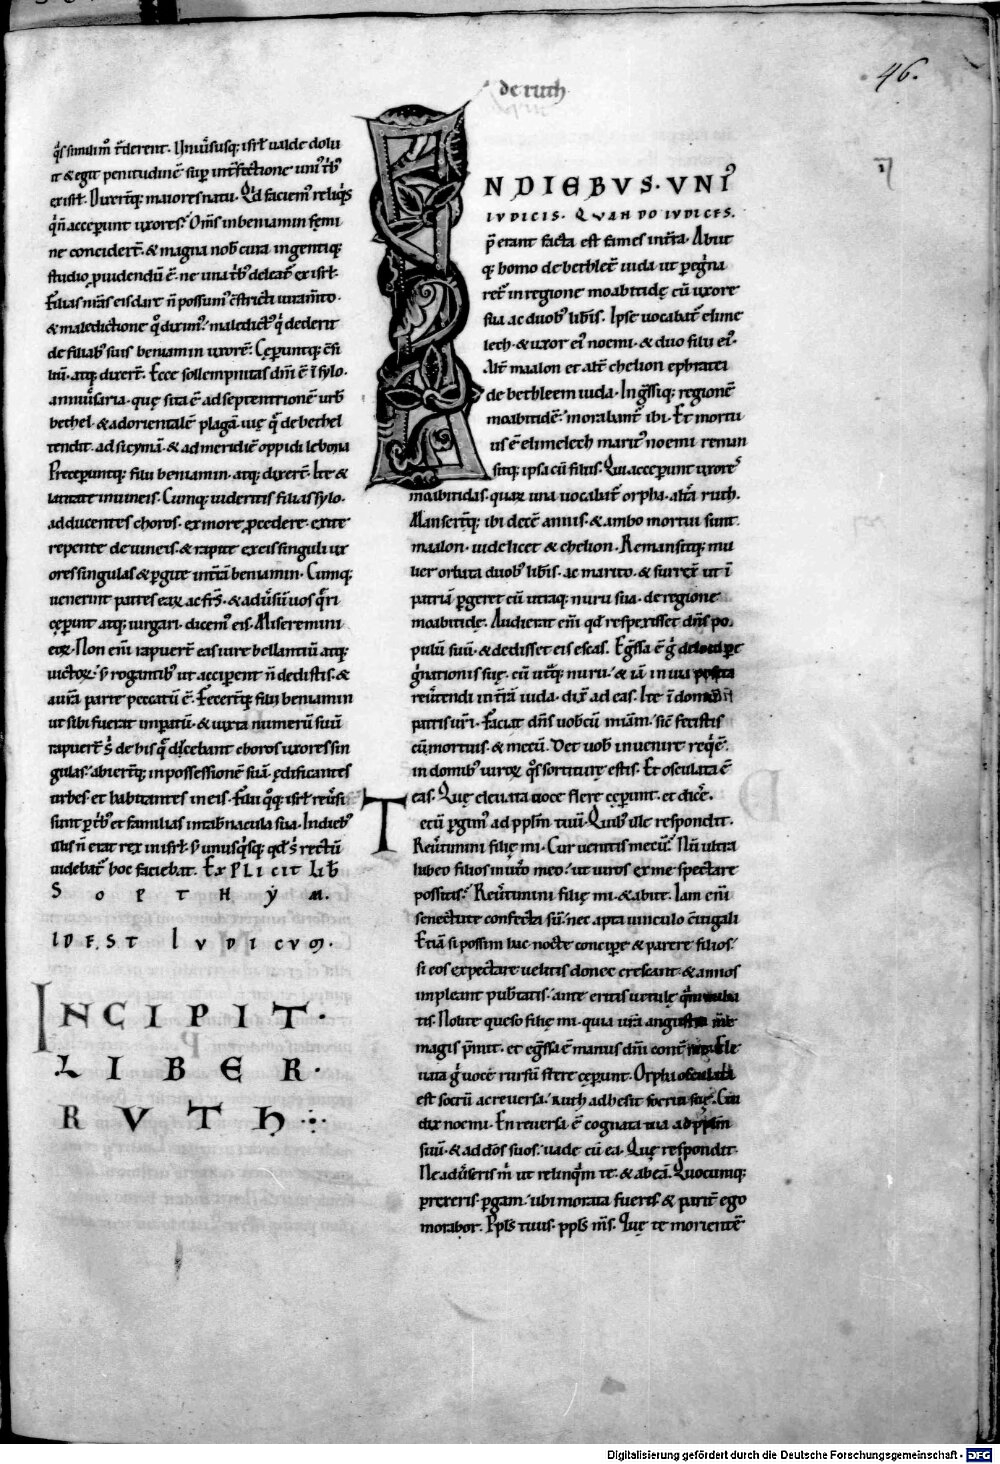 de ruth
46.
q̄s simulim᷒ t̄derent. Vniu̅susq; isrł ualde dolu
it & egit penitudinē sup̄ int̄fectione uni᷒ t̄b᷒
ex isrł. Dixerūtq; maiores natu. Qͥd faciem᷒ reliqͥs
qͥ ñ acceperunt uxores? Om̄s in beniamin femi
ne conciderт̄. & magna nob̄ cura ingentiq;
studio ꝓuidendū ē. ne una t̄b᷒ deleat̄ ex isrł.
Filias nr̄as eis dare ñ possum᷒ c̄stricti iuram̄to.
& maledictione qͣ dixim᷒. maledict᷒ qͥ dederit
de filiab᷒ suis beniamin uxorē. Ceperuntq; c̄si
liū. atq; dixerт̄. Ecce sollempnitas dn̄i ē ī sylo.
anniu̅saria. quę sita ē ad septentrionē urb̄
bethel. & ad orientalē plagā. uię qͣ de bethel
tendit. ad sicymā. & ad meridiē oppidi lebona
Preceperuntq; filiis beniamin. atq; dixerт̄. Ite &
latitate in uineis. Cumq; uideritis filias sylo.
ad ducentes choros. ex more ꝓcedere. exite
repente de uineis. & rapite ex eis singuli ux
ores singulas & pergite in t̄rā beniamin. Cumq;
uenerint patres eaꝝ ac fr̄s. & adu̅sū uos q̄ri
cęperint atq; iurgari. dicem᷒ eis. Miseremini
eoꝝ. Non eni rapuerт̄ eas iure bellantiū atq;
uictoꝝ. s̄ rogantib᷒ ut acciperent ñ dedistis. &
a ur̄a parte peccatū ē. Feceruntq; filii beniamin
ut sibi fuerat imperatū. & iuxta numerū suū
rapuerт̄ s̄ de his qͣ ducebant choros uxores sin
gulas. abieruntq; in possessionē suā. ędificantes
urbes et habitantes in eis. Filii qͦq; isrł reu̅si
sunt per t̄b᷒ et familias in tab̄nacula sua. In dieb᷒
illis ñ erat rex in isrł. s̄ unusqͥsq; qͦd s̄ rectū
uidebat̄ hoc faciebat. ExPLICIT LIB̄
SOPTHYM.
IDEST IVDICVM.
INCIPIT.
LIBER.
RVTH
IN DIEBVS. VNI᷒
IVDICIS. QVANDO IVDICES.
p̄erant facta est fames in t̄ra. Abiit
q; homo de bethleē iuda ut pegͥna
ret̄ in regione moabitidę cū uxore
sua ac duob᷒ lib̄is. Ipse uocabat̄ elime
lech. & uxor ei᷒ noemi. & duo filii ei᷒.
Alт̄ maalon et alт̄ chelion ephratei
de bethleem iuda. Ingͤssiq; regionē
moabitidē. morabant̄ ibi. Et mortu
us ē elimelech marit᷒ noemi. reman
sitq; ipsa cū filiis. Qui acceperunt uxores
moabitidas. quaꝝ una uocabat̄ orpha. alt̄a ruth.
Manserтq; ibi decē annis. & ambo mortui sunt.
maalon. uidelicet & chelion. Remansitq; mu
lier orbata duob᷒ lib̄is. ac marito. & surrex̄ ut ī
patriā pergeret cū utraq; nuru sua. de regione
moabitidę. Audierat eni qd̄ respexisset dn̄s po
pulū suū. & dedisset eis escas. Egͤssa ē gͥ de loco pe
gͥnationis suę. cū utͣq; nuru. & iā in uia posita
reu̅tendi in t̄rā iuda. dix̄ ad eas. Ite ī domū
patris ur̄i. Faciat dn̄s uob̄cū mīam. sic̄ fecistis
cū mortuis. & mecū. Det uob̄ inuenire reqͥē.
in domib᷒ uiroꝝ q̄s sortiturę estis. Et osculata ē
eas. Quę eleuata uoce flere cęperunt. et dic̄e.
Tecū pergim᷒ ad pp̄lm̄ tuū. Quib᷒ ille respondit.
Reu̅timini filię mi. Cur uenitis mecū? Nū ultra
habeo filios in utͦ meo. ut uiros ex me sperare
possitis? Reu̅timini filię mi. & abite. Iam eni
senectute confecta sū. nec apta uinculo c̄iugali
Etiā si possim hac nocte concipere & parere filios.
si eos expectare uelitis donec crescant. & annos
impleant pub̄tatis. ante eritis uetulę qͣm nuba
tis. Nolite queso filię mi. quia ur̄a angustia me
magis p̄mit. et egͤssa ē manus dn̄i contͣ me. Ele
uata gͥ uoce rursū flere cęperunt. Orpha osculata
est socrū ac reuersa. Ruth adhesit socrui suę. Cui
dix̄ noemi. En reuersa ē cognata tua ad pp̄lm̄
suū. & ad dōs suos. uade cū ea. Quę respondit.
Ne adu̅seris m̄ ut relinqͣm te. & abeā. Quocumq;
perrexeris. pergam. ubi morata fueris. & pariт̄ ego
morabor. Pp̄ls tuus. pp̄ls m̄s. Quę te morientē
Digitalisierung gefördert durch die Deutsche Forschungsgemeinschaft - DFG